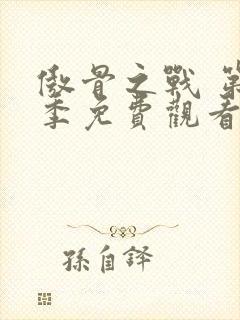 傲骨之戰 第
季免費觀看
孫自譯